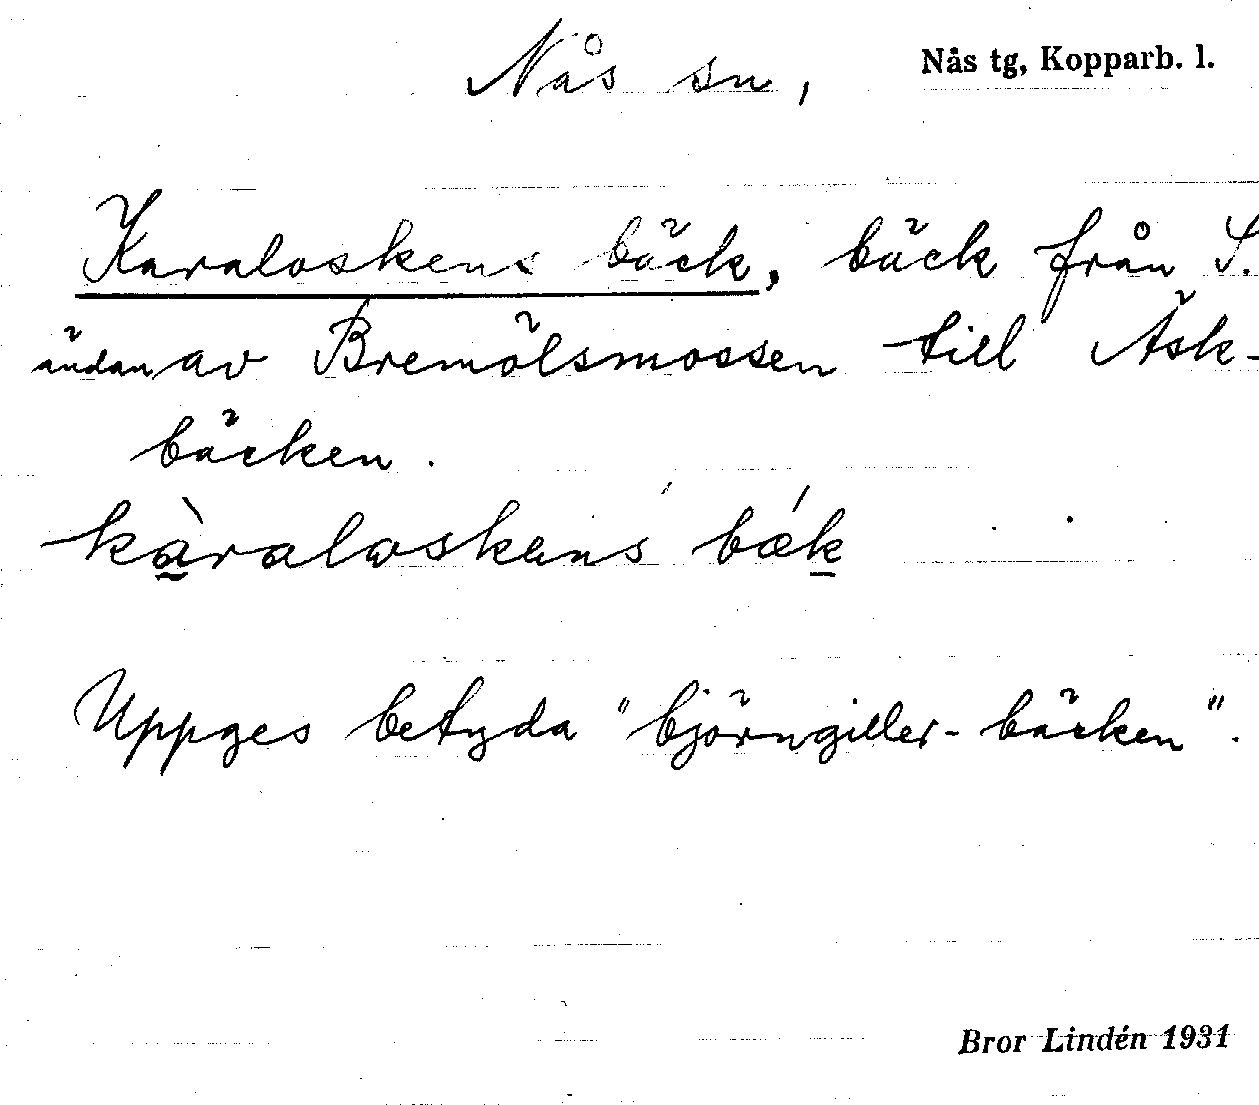 Nås sn, Nås tg, Kopparb. l.
Karaloskens bäck, bäck från S.
ändan av Bremölsmossen till Äsk-
bäcken.
kàraloskens bǽk
Uppges betyda "björngiller-bäcken".
Bror Lindén 1931